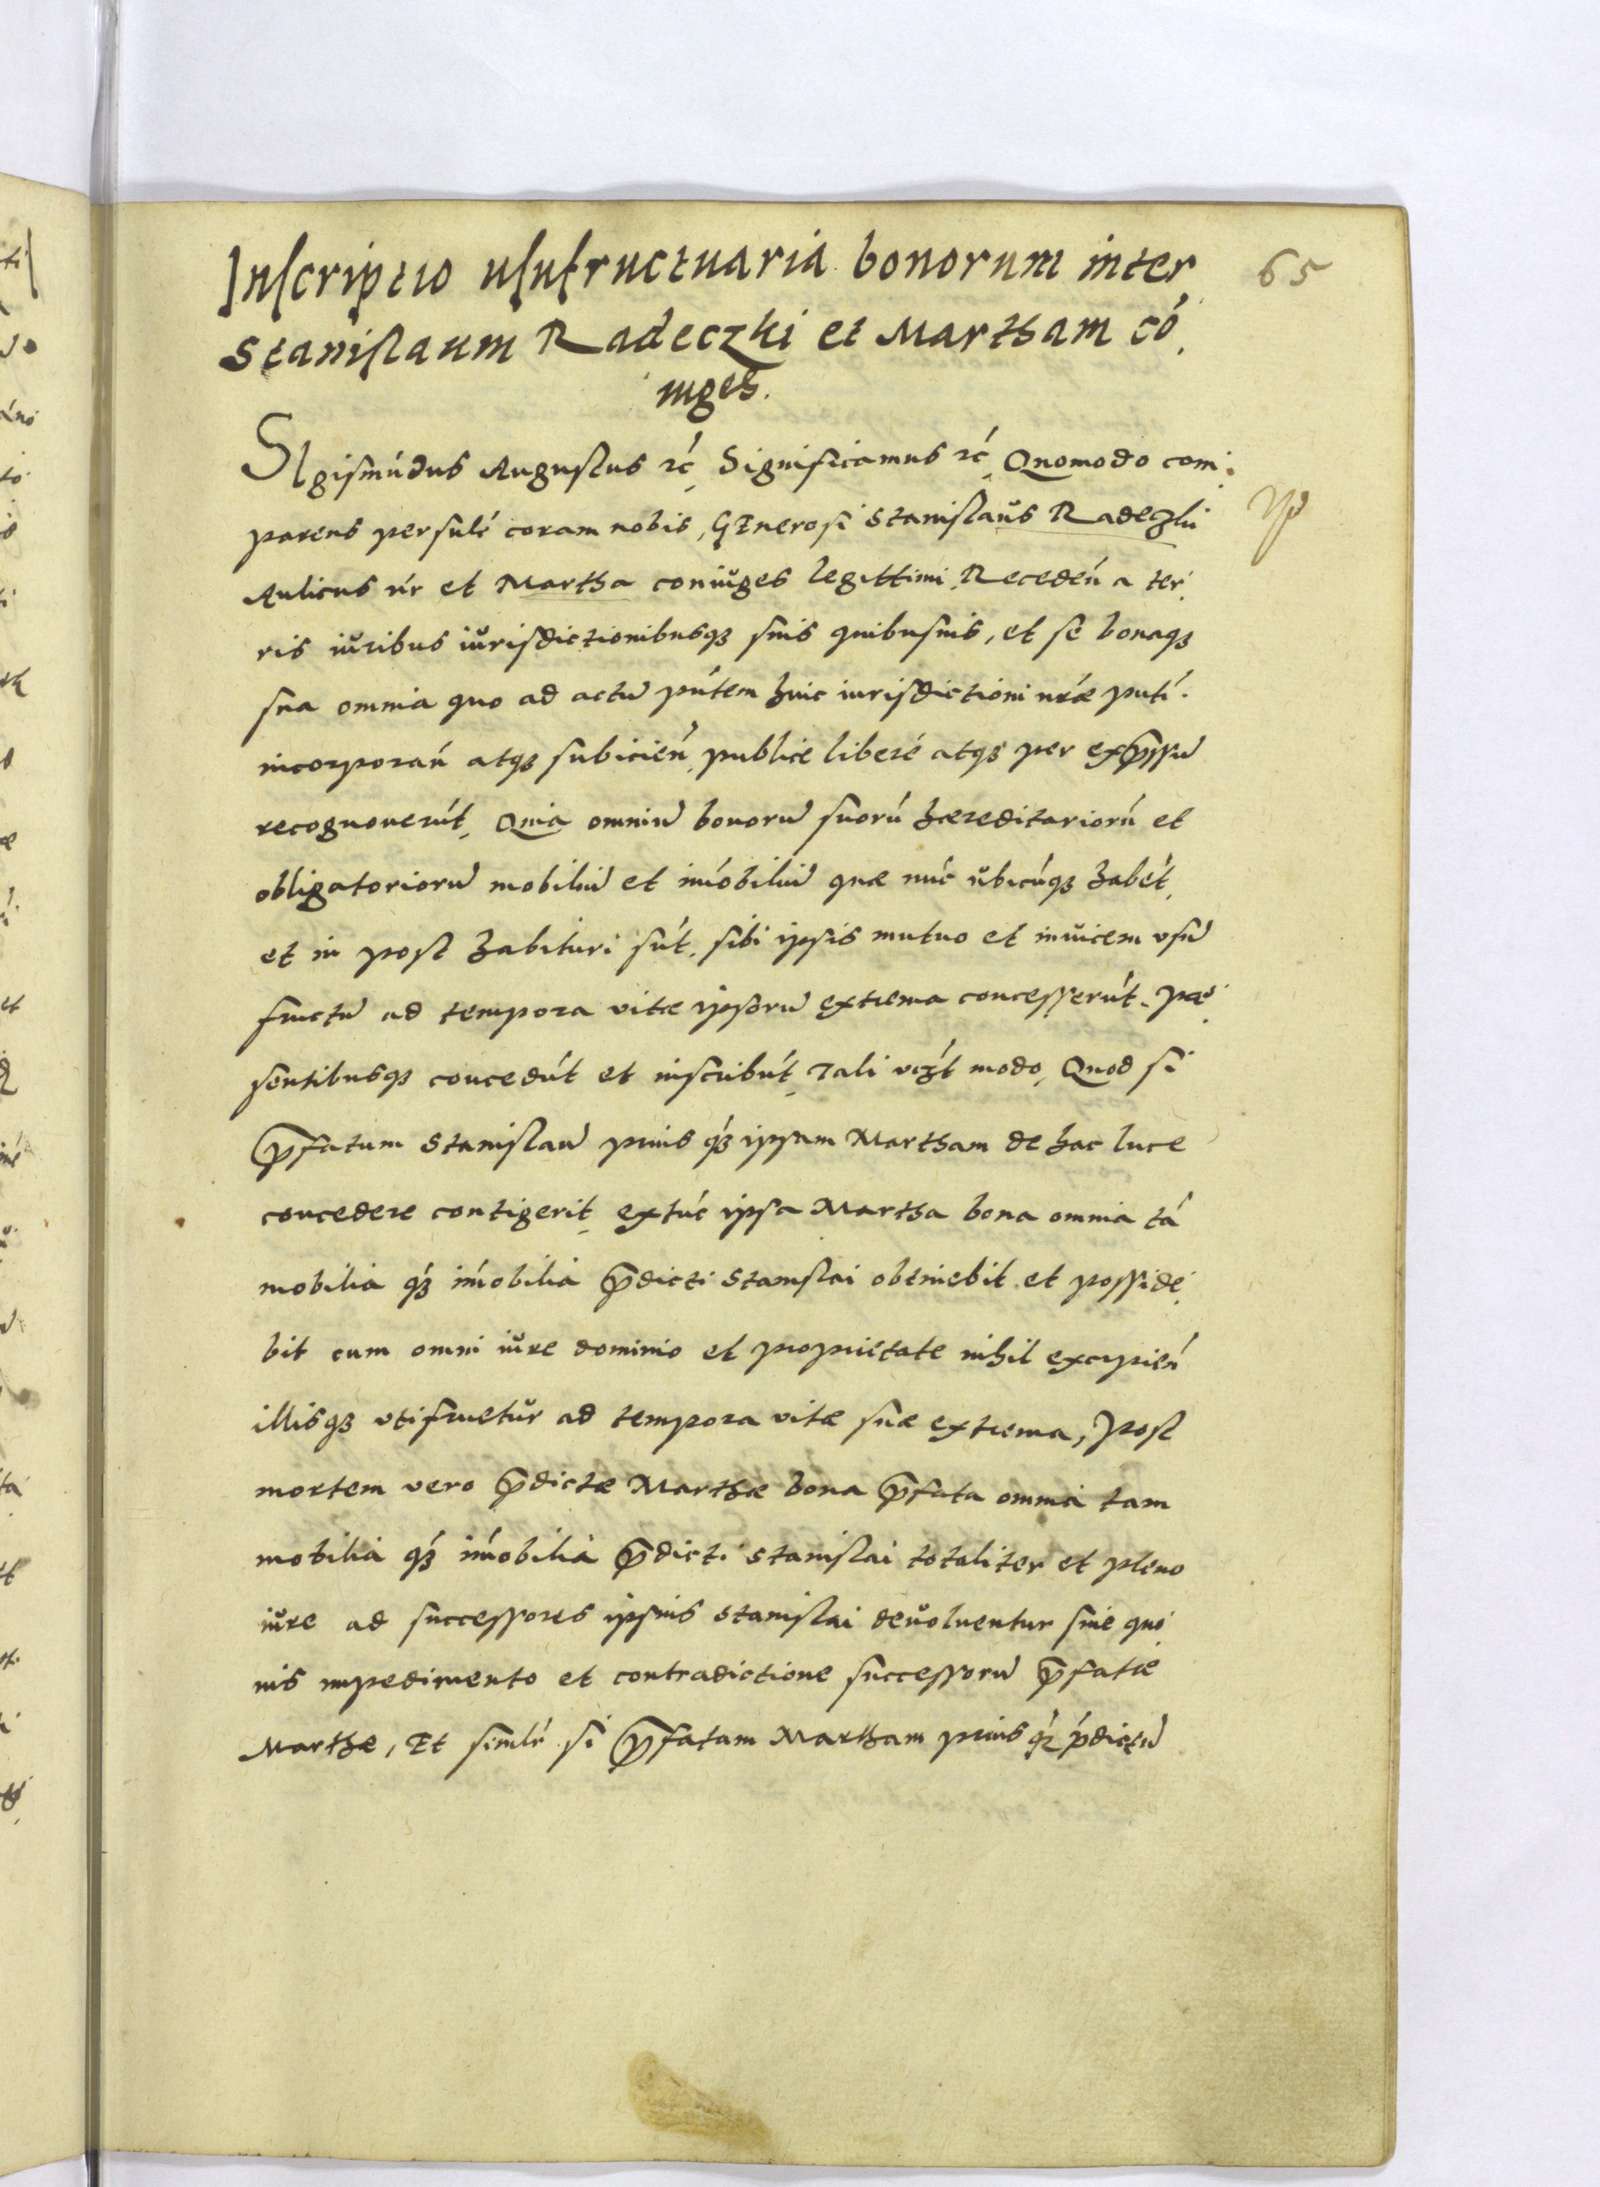 Inscriptio usufructuaria bonorum inter
65
Stanislaum Radeczki et Martham có
iuges.
SIgismúdus Augustus rć, Significamus rć, Quomodo com:
parens personalr coram nobis, GEnerosi Stanislaŭs Radeczki
Aulicus nr et Martha coniŭges legittimi, Recedeń a ter,
ris iŭribus iŭrisdictionibusqȝ suis quibusuis, et se bonaqȝ
sua omnia quo ad actū pńtem huic iurisdictioni nrǽ pntí.
incorporań atqȝ subicień, publice liberé atqȝ per expssū
recognouerút, Quia omniū bonorū suorú hæreditariorú et
obligatoriorū mobiliū et imóbiliū quæ núc ŭbicúqȝ habét,
et in post habituri sút, sibi ipsis mutuo et inŭicem vsū
fructū ad tempora vitæ ipsorū extrema concesserút, præ,
sentibusqȝ concedút et inscribút, Tali vczt modo, Quod si
pfatum Stanislaū prius qȝ ipsam Martham de hac luce
concedere contigerit, extúc ipsa Martha bona omnia tá
mobilia qȝ imóbilia pdicti Stanislai obtinebit et posside,
bit cum omni iŭre dominio et proprietate nihil excipień
illisqȝ vtifruetŭr ad tempora vitæ suæ extrema, Post
mortem vero pdictæ Marthæ bona pfata omnia tam
mobilia qȝ imóbilia pdicti Stanislai totaliter et pleno
iŭre ad successores ipsius Stanislai deŭoluentur sine quo,
uis impedimento et contradictione successorū pfatæ
Marthæ, Et similr si pfatam Martham prius qȝ pdictū